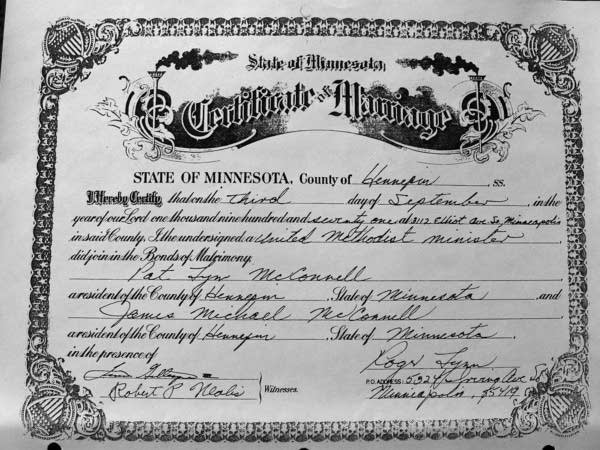 State of Minnesota
Certificate of Marriage
STATE OF MINNESOTA, County of Hennepin, ss.
I Hereby Certify that on the Third day of September, in the
year of our Lord one thousand nine hundred and seventy one at 3117 Elliot Ave So, Minneapolis
in said County, I the undersigned, a United Methodist minister
did join in the Bonds of Matrimony,
Pat Lyn McConnell
a resident of the County of Hennepin, State of Minnesota, and
James Michael McConnell
a resident of the County of Hennepin, State of Minnesota.
in the presence of
Roger Lynn
Robert P. Witnesses.
P.O. ADDRESS: Irving Ave So
Minneapolis, 55419